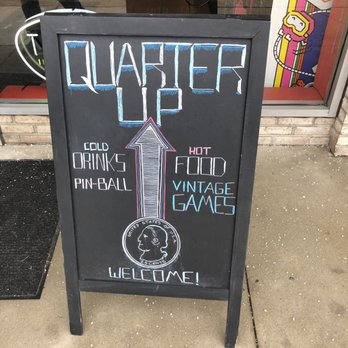 QUARTER
UP
COLD
DRINKS
PIN-BALL
HOT
FOOD
VINTAGE
GAMES
WELCOME!